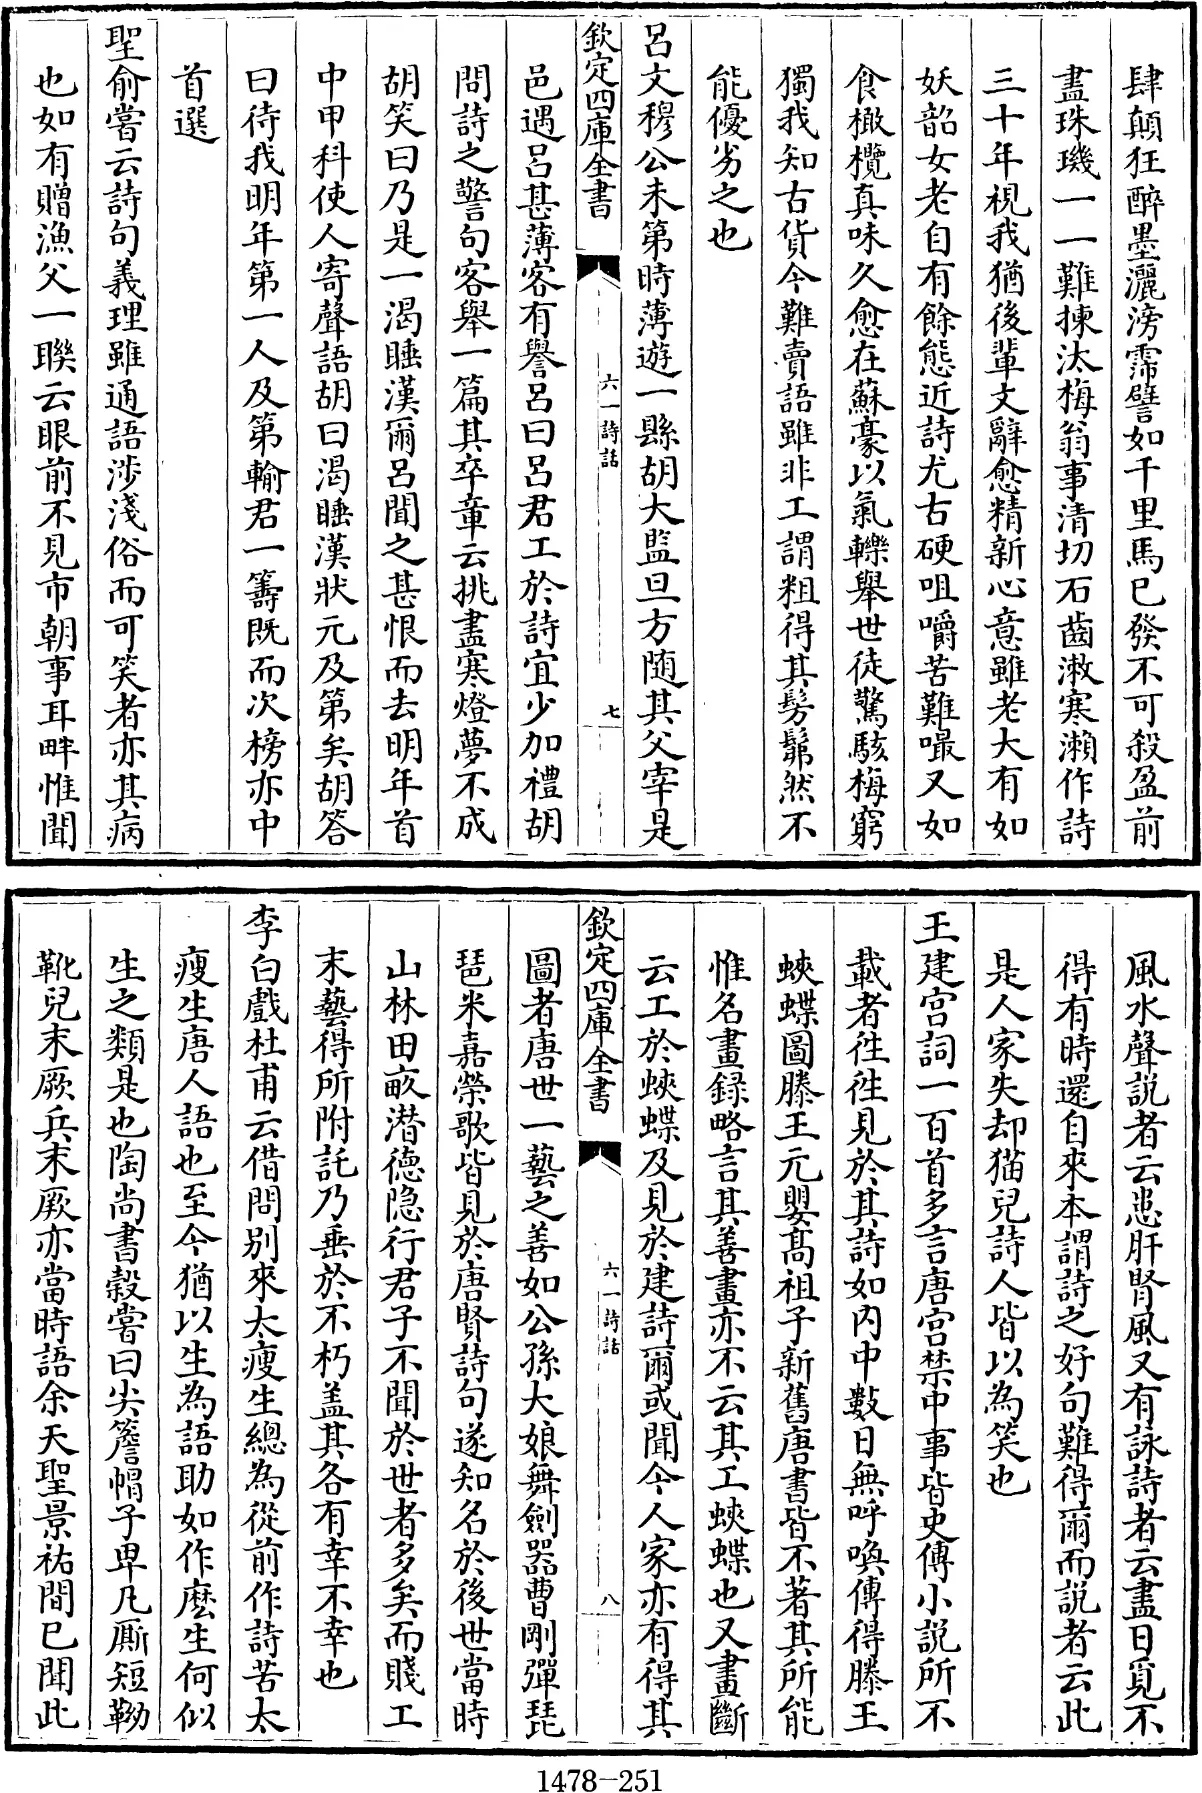 肆顛狂醉墨灑滂霈譬如千里馬已發不可殺盈前
盡珠璣一一難揀汰梅翁事清切石齒漱寒瀨作詩
三十年視我猶後輩文辭愈精新心意雖老大有如
妖韶女老自有餘態近詩尤古硬咀嚼苦難嘬又如
食橄欖真味久愈在蘇豪以氣轢舉世徒驚駭梅窮
獨我知古貨今難賣語雖非工謂粗得其髣髴然不
能優劣之也
呂文穆公未第時薄遊一縣胡大監旦方隨其父宰是
欽定四庫全書
六一詩話
七
邑遇呂甚薄客有譽呂曰呂君工於詩宜少加禮胡
問詩之警句客舉一篇其卒章云挑盡寒燈夢不成
胡笑曰乃是一渴睡漢爾呂聞之甚恨而去明年首
中甲科使人寄聲語胡曰渴睡漢狀元及第矣胡答
曰待我明年第一人及第輸君一籌既而次榜亦中
首選
聖俞嘗云詩句義理雖通語涉淺俗而可笑者亦其病
也如有贈漁父一聯云眼前不見市朝事耳畔惟聞
風水聲説者云患肝腎風又有詠詩者云盡日覓不
得有時還自來本謂詩之好句難得爾而説者云此
是人家失却猫兒詩人皆以為笑也
王建宫詞一百首多言唐宫禁中事皆史傳小説所不
載者徃徃見於其詩如内中數日無呼喚傳得滕王
蛺蝶圖滕王元嬰髙祖子新舊唐書皆不著其所能
惟名畫録略言其善畫亦不云其工蛺蝶也又畫斷
云工於蛺蝶及見於建詩爾或聞今人家亦有得其
欽定四庫全書
六一詩話
八
圖者唐世一藝之善如公孫大娘舞劍器曹剛彈琵
琶米嘉榮歌皆見於唐賢詩句遂知名於後世當時
山林田畝潜德隐行君子不聞於世者多矣而賤工
末藝得所附託乃垂於不朽盖其各有幸不幸也
李白戲杜甫云借問别來太瘦生總為從前作詩苦太
瘦生唐人語也至今猶以生為語助如作麽生何似
生之類是也陶尚書穀嘗曰尖簷帽子卑凡厮短靿
靴兒末厥兵末厥亦當時語余天聖景祐間已聞此
1478-251